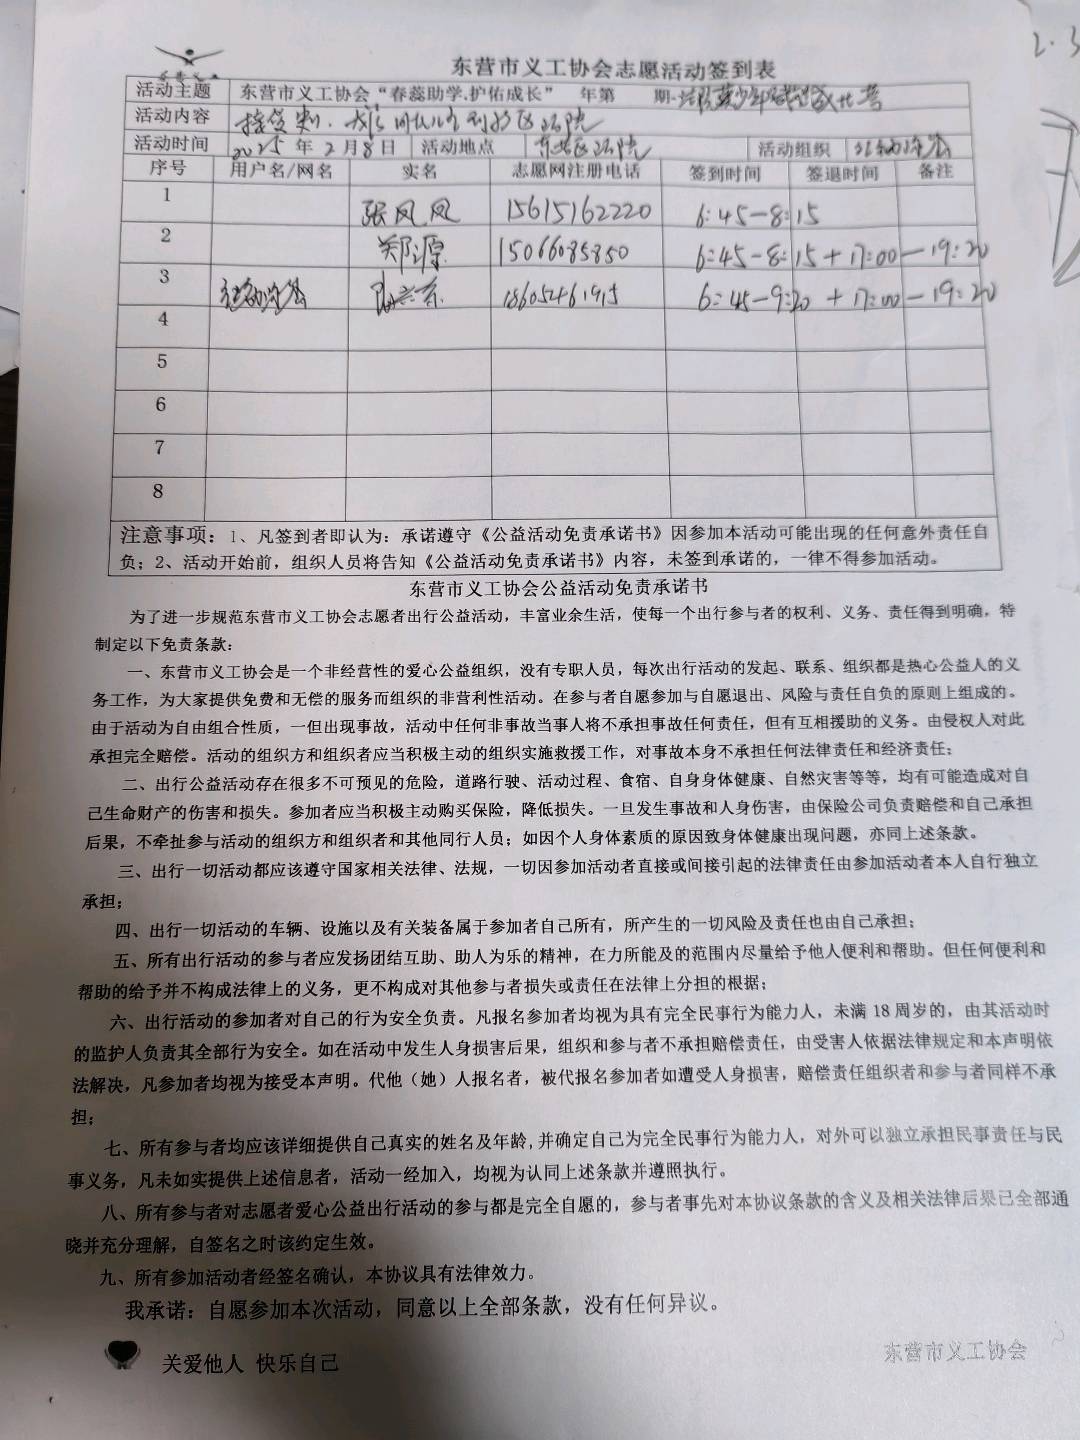 东营市义工协会志愿活动签到表
活动主题 东营市义工协会“春蕊助学.护佑成长” 年第 期-
活动内容
活动时间 2025 年 2 月 8 日 活动地点 活动组织
序号 用户名/网名 实名 志愿网注册电话 签到时间 签退时间 备注
1 张凤凤 15615162220 6:45-8:15
2 郑源 15066085850 6:45-8:15+17:00-19:20
3 18605461915 6:45-9:20 +17:00-19:20
4
5
6
7
8
注意事项：1、凡签到者即认为：承诺遵守《公益活动免责承诺书》因参加本活动可能出现的任何意外责任自
负；2、活动开始前，组织人员将告知《公益活动免责承诺书》内容，未签到承诺的，一律不得参加活动。
东营市义工协会公益活动免责承诺书
为了进一步规范东营市义工协会志愿者出行公益活动，丰富业余生活，使每一个出行参与者的权利、义务、责任得到明确，特
制定以下免责条款：
一、东营市义工协会是一个非经营性的爱心公益组织，没有专职人员，每次出行活动的发起、联系、组织都是热心公益人的义
务工作，为大家提供免费和无偿的服务而组织的非营利性活动。在参与者自愿参加与自愿退出、风险与责任自负的原则上组成的。
由于活动为自由组合性质，一但出现事故，活动中任何非事故当事人将不承担事故任何责任，但有互相援助的义务。由侵权人对此
承担完全赔偿。活动的组织方和组织者应当积极主动的组织实施救援工作，对事故本身不承担任何法律责任和经济责任；
二、出行公益活动存在很多不可预见的危险，道路行驶、活动过程、食宿、自身身体健康、自然灾害等等，均有可能造成对自
己生命财产的伤害和损失。参加者应当积极主动购买保险，降低损失。一旦发生事故和人身伤害，由保险公司负责赔偿和自己承担
后果，不牵扯参与活动的组织方和组织者和其他同行人员；如因个人身体素质的原因致身体健康出现问题，亦同上述条款。
三、出行一切活动都应该遵守国家相关法律、法规，一切因参加活动者直接或间接引起的法律责任由参加活动者本人自行独立
承担；
四、出行一切活动的车辆、设施以及有关装备属于参加者自己所有，所产生的一切风险及责任也由自己承担；
五、所有出行活动的参与者应发扬团结互助、助人为乐的精神，在力所能及的范围内尽量给予他人便利和帮助。但任何便利和
帮助的给予并不构成法律上的义务，更不构成对其他参与者损失或责任在法律上分担的根据；
六、出行活动的参加者对自己的行为安全负责。凡报名参加者均视为具有完全民事行为能力人，未满 18 周岁的，由其活动时
的监护人负责其全部行为安全。如在活动中发生人身损害后果，组织和参与者不承担赔偿责任，由受害人依据法律规定和本声明依
法解决，凡参加者均视为接受本声明。代他（她）人报名者，被代报名参加者如遭受人身损害，赔偿责任组织者和参与者同样不承
担；
七、所有参与者均应该详细提供自己真实的姓名及年龄，并确定自己为完全民事行为能力人，对外可以独立承担民事责任与民
事义务，凡未如实提供上述信息者，活动一经加入，均视为认同上述条款并遵照执行。
八、所有参与者对志愿者爱心公益出行活动的参与都是完全自愿的，参与者事先对本协议条款的含义及相关法律后果已全部通
晓并充分理解，自签名之时该约定生效。
九、所有参加活动者经签名确认，本协议具有法律效力。
我承诺：自愿参加本次活动，同意以上全部条款，没有任何异议。
关爱他人 快乐自己
东营市义工协会